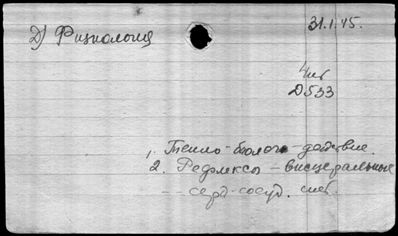 Д) Физиология
31.1.45.
4ит
Д533
1. Тепло - биолог. действие.
2. Рефлексы - висцеральные
-- серд-сосуд. сист.